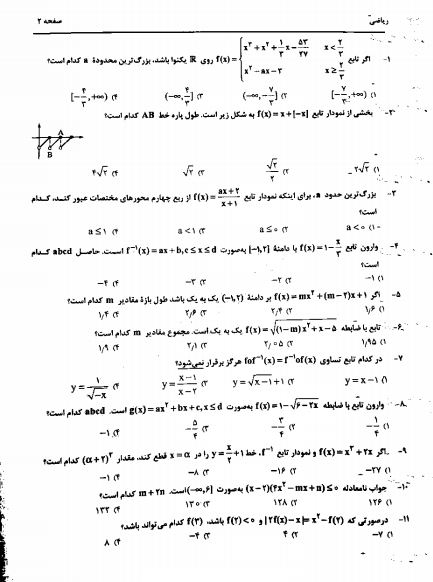 ریاضی صفحه ۲
۱- اگر تابع f(x) = { x³ + x² + 1/3 x - 53/27 x < 2/3
x² - ax - 2 x ≥ 2/3 روی ℝ یکنوا باشد، بزرگ‌ترین محدودهٔ a کدام است؟
۱) [-7/3, +∞) ۲) (-∞, -7/3] ۳) (-∞, 4/3] ۴) [-4/3, +∞)
بخشی از نمودار تابع f(x) = x + [-x] به شکل زیر است. طول پاره خط AB کدام است؟
A
B
۱) 2√2 ۲) √2/2 ۳) √2 ۴) 4√2
بزرگ‌ترین حدود a، برای اینکه نمودار تابع f(x) = (ax+2)/(x+1) از ربع چهارم محورهای مختصات عبور کند، کدام
است؟
۱) a < 0 ۲) a ≤ 0 ۳) a < 1 ۴) a ≤ 1
۴- وارون تابع f(x) = 1 - x/3 با دامنهٔ [-1, 2] به‌صورت f⁻¹(x) = ax + b, c ≤ x ≤ d است. حاصل abcd کدام
است؟
۱) -1 ۲) -2 ۳) -3 ۴) -4
۵- اگر f(x) = mx² + (m-2)x + 1 بر دامنهٔ (-1, 2) یک به یک باشد طول بازهٔ مقادیر m کدام است؟
۱) 1/6 ۲) 2/4 ۳) 2/6 ۴) 1/4
۶- تابع با ضابطه f(x) = √((1-m)x² + x - 5) یک به یک است. مجموع مقادیر m کدام است؟
۱) 1/95 ۲) 2/05 ۳) 2/1 ۴) 1/9
۷- در کدام تابع تساوی fof⁻¹(x) = f⁻¹of(x) هرگز برقرار نمی‌شود؟
۱) y = x - 1 ۲) y = √(x-1) + 1 ۳) y = (x-1)/(x-2) ۴) y = 1/√(-x)
۸- وارون تابع با ضابطه f(x) = 1 - √(6-2x) به‌صورت g(x) = ax² + bx + c, x ≤ d است. abcd کدام است؟
۱) -1/4 ۲) -3/4 ۳) -5/4 ۴) -1
۹- اگر f(x) = x³ + 2x و نمودار تابع f⁻¹، خط y = x/2 + 1 را در x = α قطع کند، مقدار (α+2)³ کدام است؟
۱) -27 ۲) -16 ۳) -8 ۴) -1
۱۰- جواب نامعادله (x-2)(4x² - mx + n) ≤ 0 به‌صورت (-∞, 6] است. m + 2n کدام است؟
۱) 126 ۲) 128 ۳) 130 ۴) 132
۱۱- درصورتی که |2f(x) - x| = x² - f(2) و f(2) < 0 باشد، f(3) کدام می‌تواند باشد؟
۱) -7 ۲) 4 ۳) -4 ۴) 8